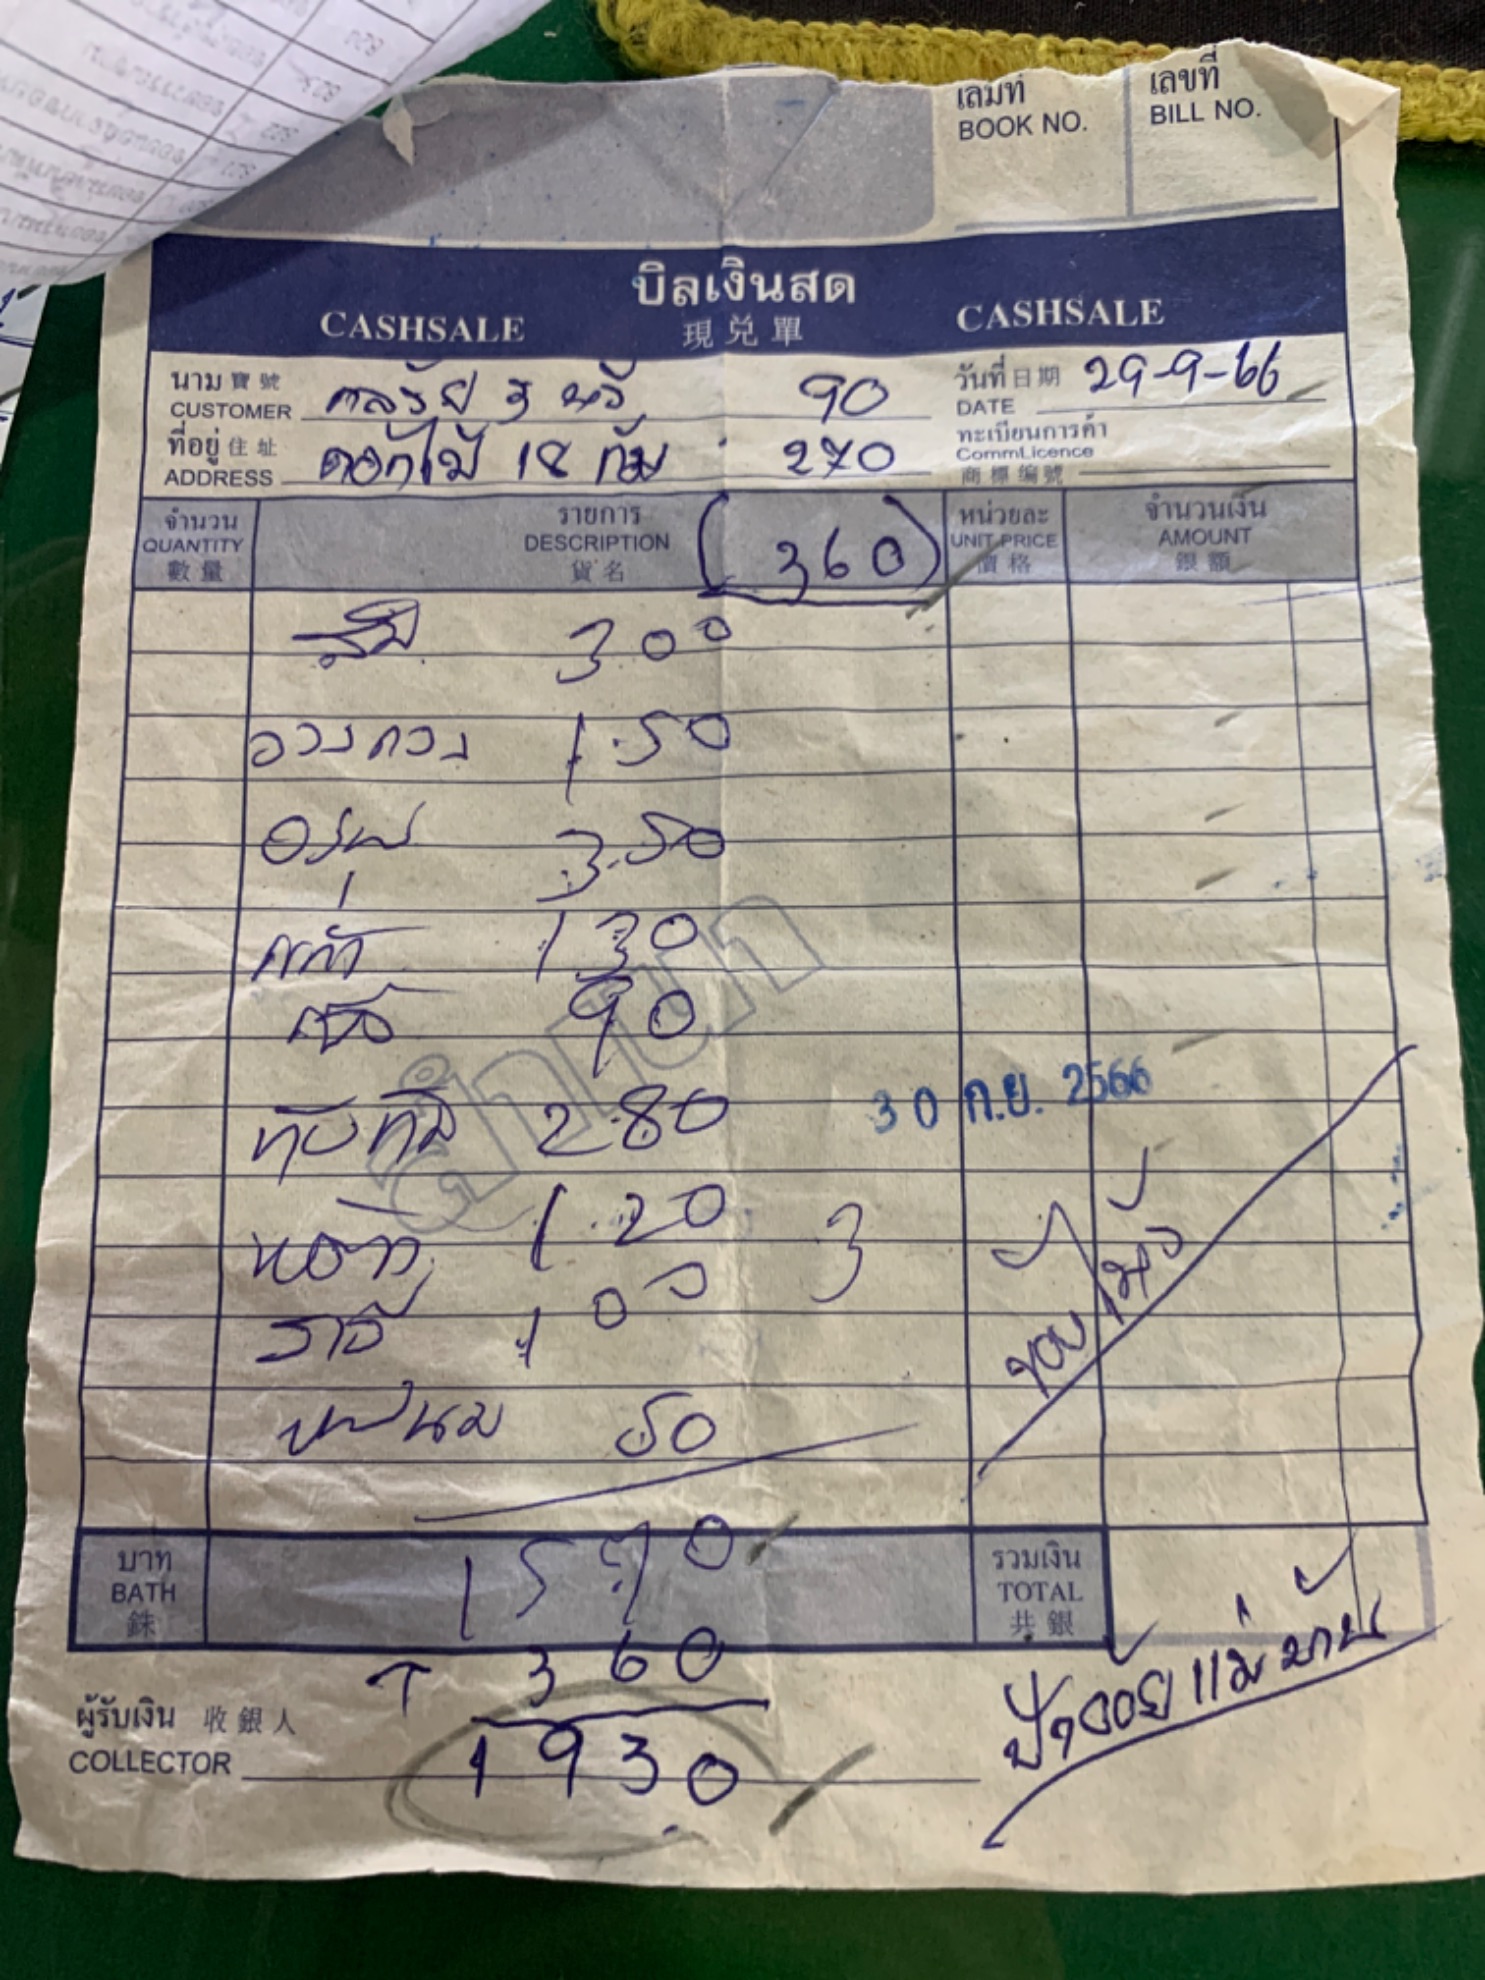 เล่มที่ เลขที่
BOOK NO. BILL NO.
บิลเงินสด
CASHSALE 現兑單 CASHSALE
นาม寶號 90 วันที่日期 29-9-66
CUSTOMER DATE
ที่อยู่住址 ดอกไม้ 18 กำ 270 ทะเบียนการค้า
ADDRESS CommLicence
商標編號
จำนวน รายการ หน่วยละ จำนวนเงิน
QUANTITY DESCRIPTION (360) UNIT PRICE AMOUNT
數量 貨名 價格 銀額
ส้ม 300
150
องุ่น 350
130
90
ทับทิม 280
120 3
100
ขนม 50
สำเนา
30 ก.ย. 2566
1570
บาท รวมเงิน
BATH TOTAL
銖 共銀
360
ผู้รับเงิน 收銀人
COLLECTOR 1930
ป้าอ้อยแม่บ้าน